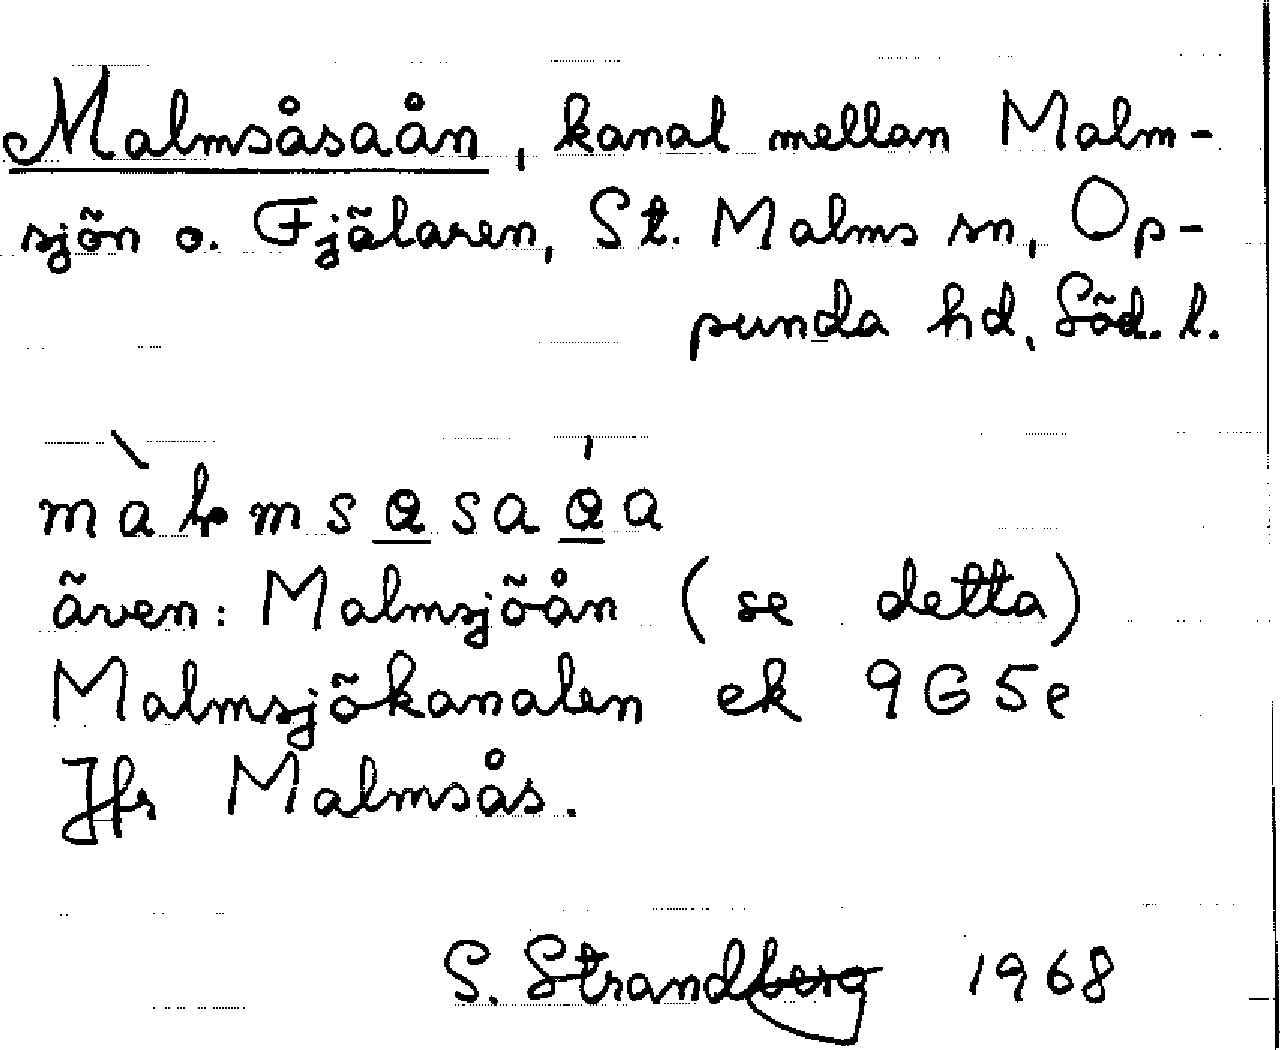 Malmsåsaån, kanal mellan Malm-
sjön o. Fjälaren, St. Malms sn, Op-
punda hd, Söd. l.
även: Malmsjöån (se detta)
Malmsjökanalen ek 9G5e
Jfr Malmsås.
S. Strandberg 1968